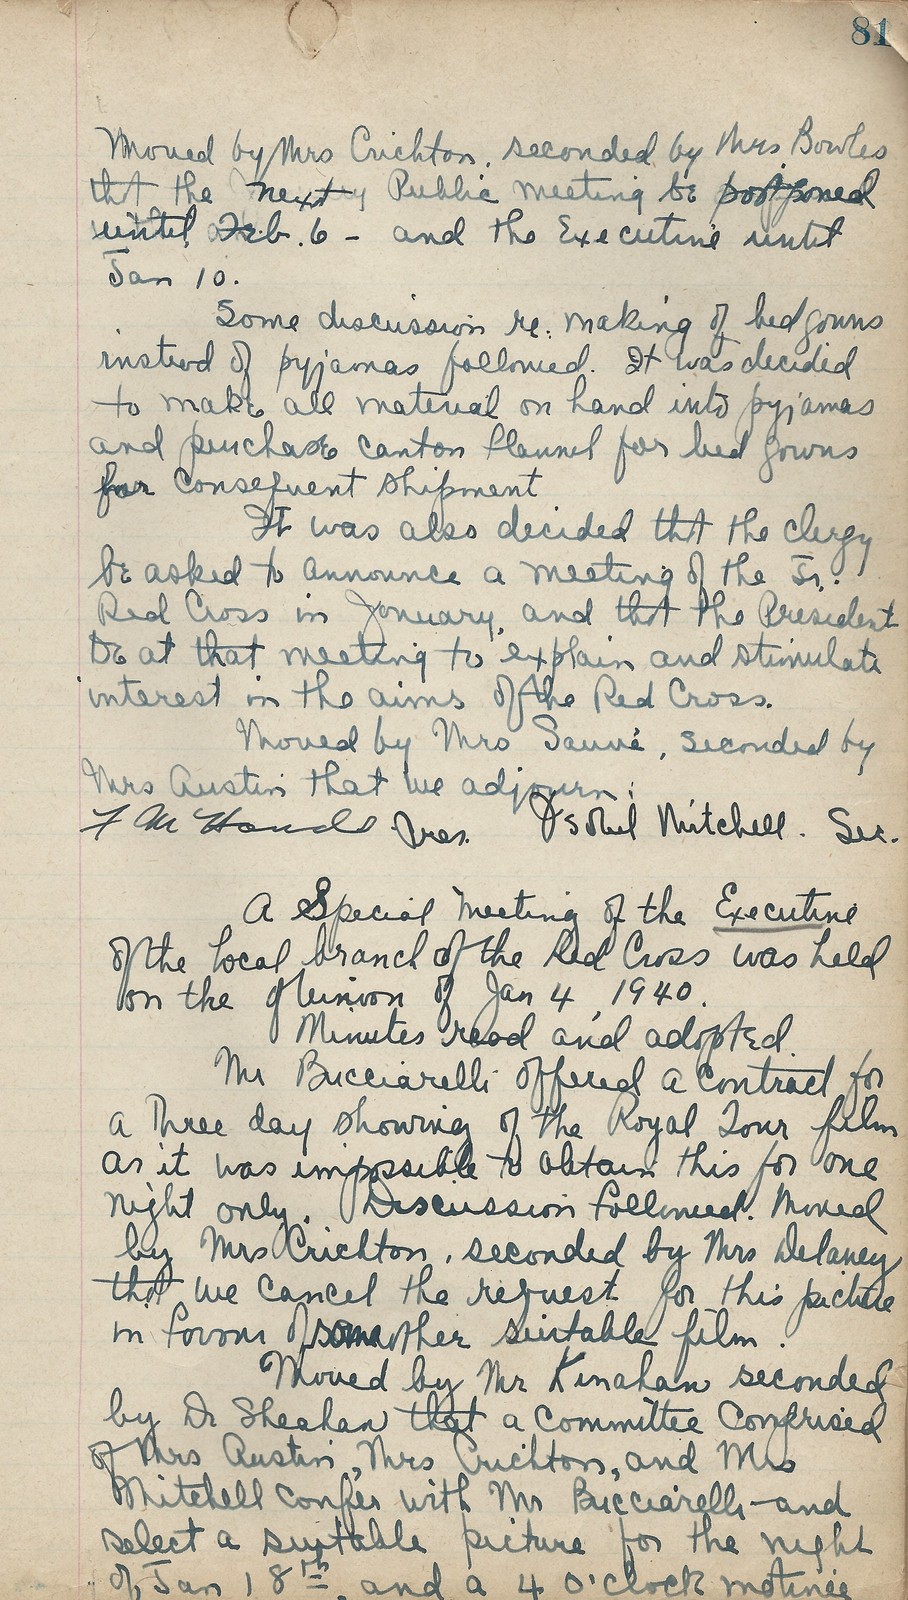 81
Moved by Mrs Crichton, seconded by Mrs Bowles
tht the next Public meeting be postponed
until Feb. 6 - and the Executive until
Jan 10.
Some discussion re. making of bed gowns
instead of pyjamas followed. It was decided
to make all material on hand into pyjamas
and purchase canton flannel for bed gowns
for consequent shipment
It was also decided tht the clergy
be asked to announce a meeting of the Jr.
Red Cross in January, and that the President
be at that meeting to explain and stimulate
interest in the aims of the Red Cross.
Moved by Mrs Sauvé, seconded by
Mrs Austin that we adjourn.
Pres. Isobel Mitchell. Sec.
A Special Meeting of the Executive
of the local branch of the Red Cross was held
on the afternoon of Jan 4, 1940.
Minutes read and adopted.
Mr Bucciarelli offered a contract for
a Three day showing of the Royal Tour film
as it was impossible to obtain this for one
night only. Discussion followed. Moved
by Mrs Crichton, seconded by Mrs Delaney
that we cancel the request for this picture
in favour of some other suitable film.
Moved by Mr Kinahan seconded
by Dr Sheahan that a committee comprised
of Mrs Austin, Mrs Crichton, and Mrs
Mitchell confer with Mr Bucciarelli - and
select a suitable picture for the night
of Jan 18th, and a 4 o'clock matinee